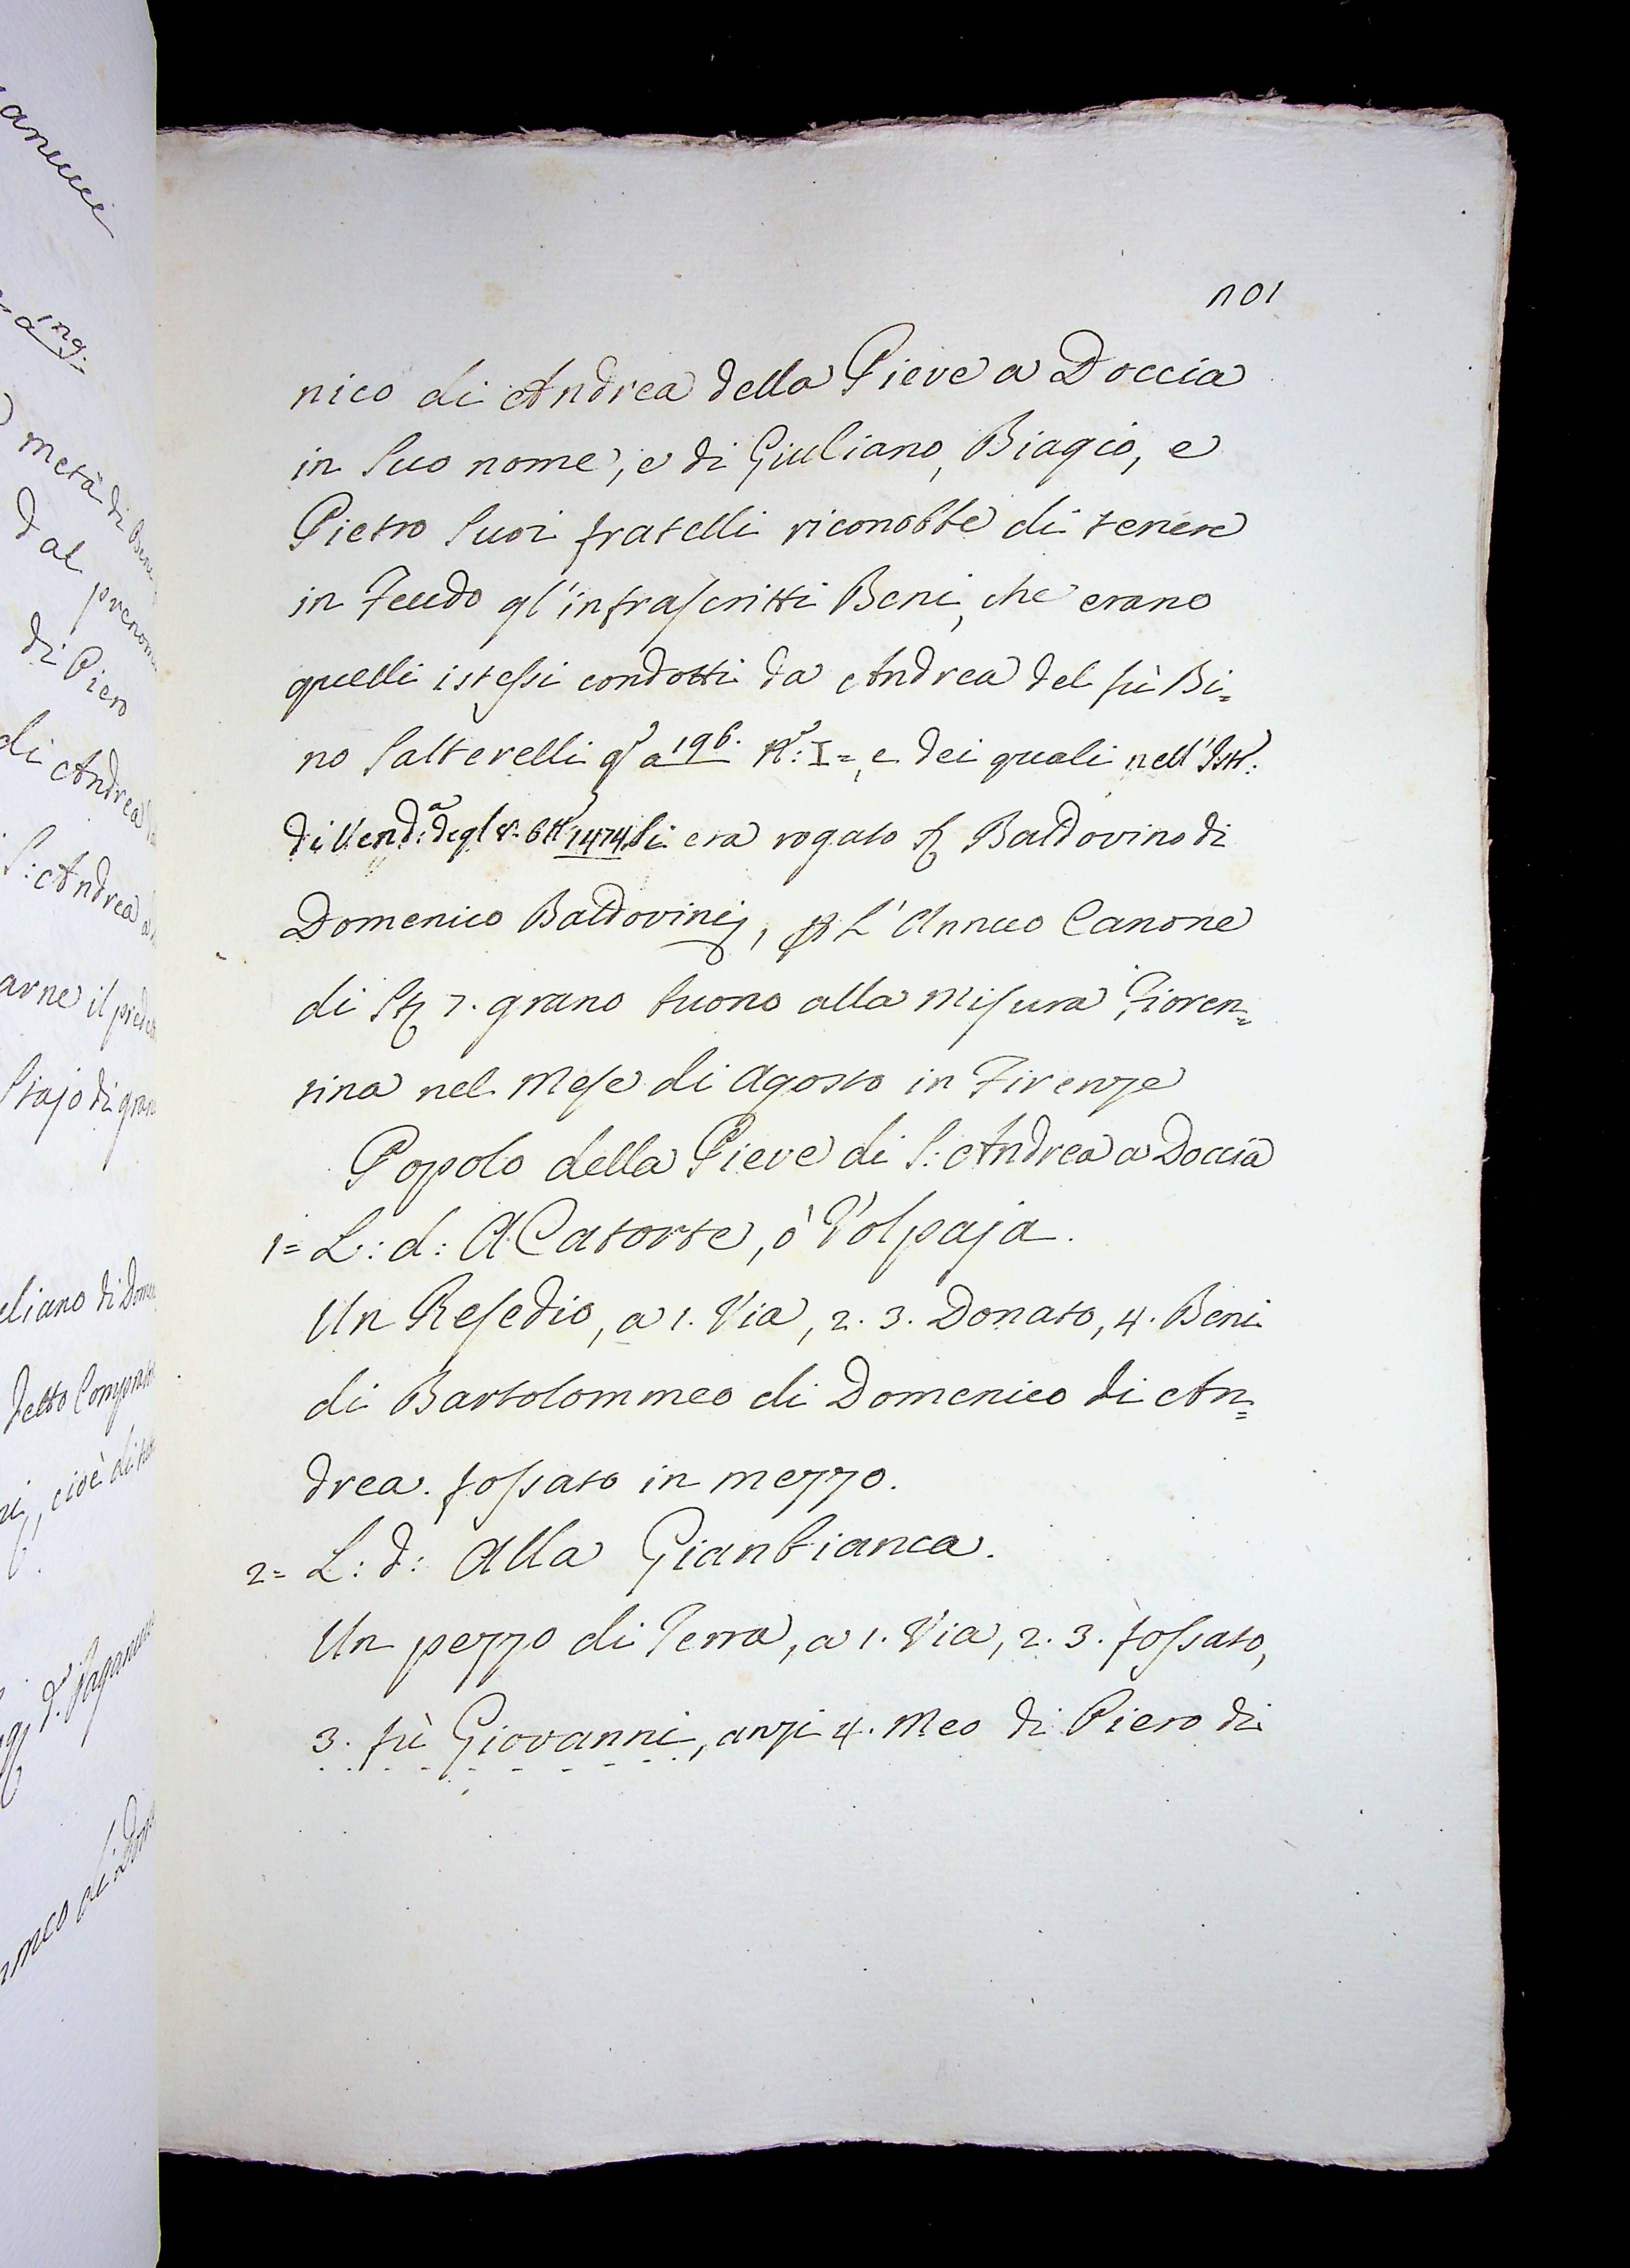 1101
nico di Andrea della Pieve a Doccia
in Suo nome, e di Giuliano, Biagio, e
Pietro Suoi fratelli riconobbe di tenere
in Feudo gl'infrascritti Beni, che erano
quelli istessi condotti da Andrea del fù Bi=
no Salterelli qͦ a 196. Nͦ: I=, e dei quali nell'Istr.
di Vend:ᵃ degl'8. 8bre 1474 Si era rogato S. Baldovino di
Domenico Baldovinj, p L'Annuo Canone
di St. 7. grano buono alla Misura Fioren=
tina nel Mese di Agosto in Firenze
Popolo della Pieve di S: Andrea a Doccia
1= L: d: A Catorte, ò Volpaja.
Un Resedio, a 1. Via, 2. 3. Donato, 4. Beni
di Bartolommeo di Domenico di An=
drea. fossato in mezzo.
2= L: d: Alla Gianbianca.
Un pezzo di Terra, a 1. Via, 2. 3. fossato,
3. fù Giovanni, anzi 4. Meo di Piero di
anucci
ing.
metà di Beni
dal
di Piero
di Andrea
S: Andrea a
arne il
Stajo di gran
Detto
cioè di